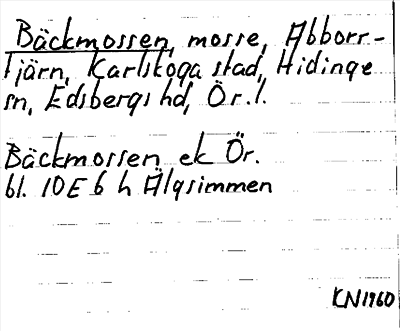 Bäckmossen, mosse, Abborr-
tjärn, Karlskoga stad, Hidinge
sn, Edsbergs hd, Ör. l.
Bäckmossen ek Ör.
bl. 10E 6 h Älgsimmen
KN1960